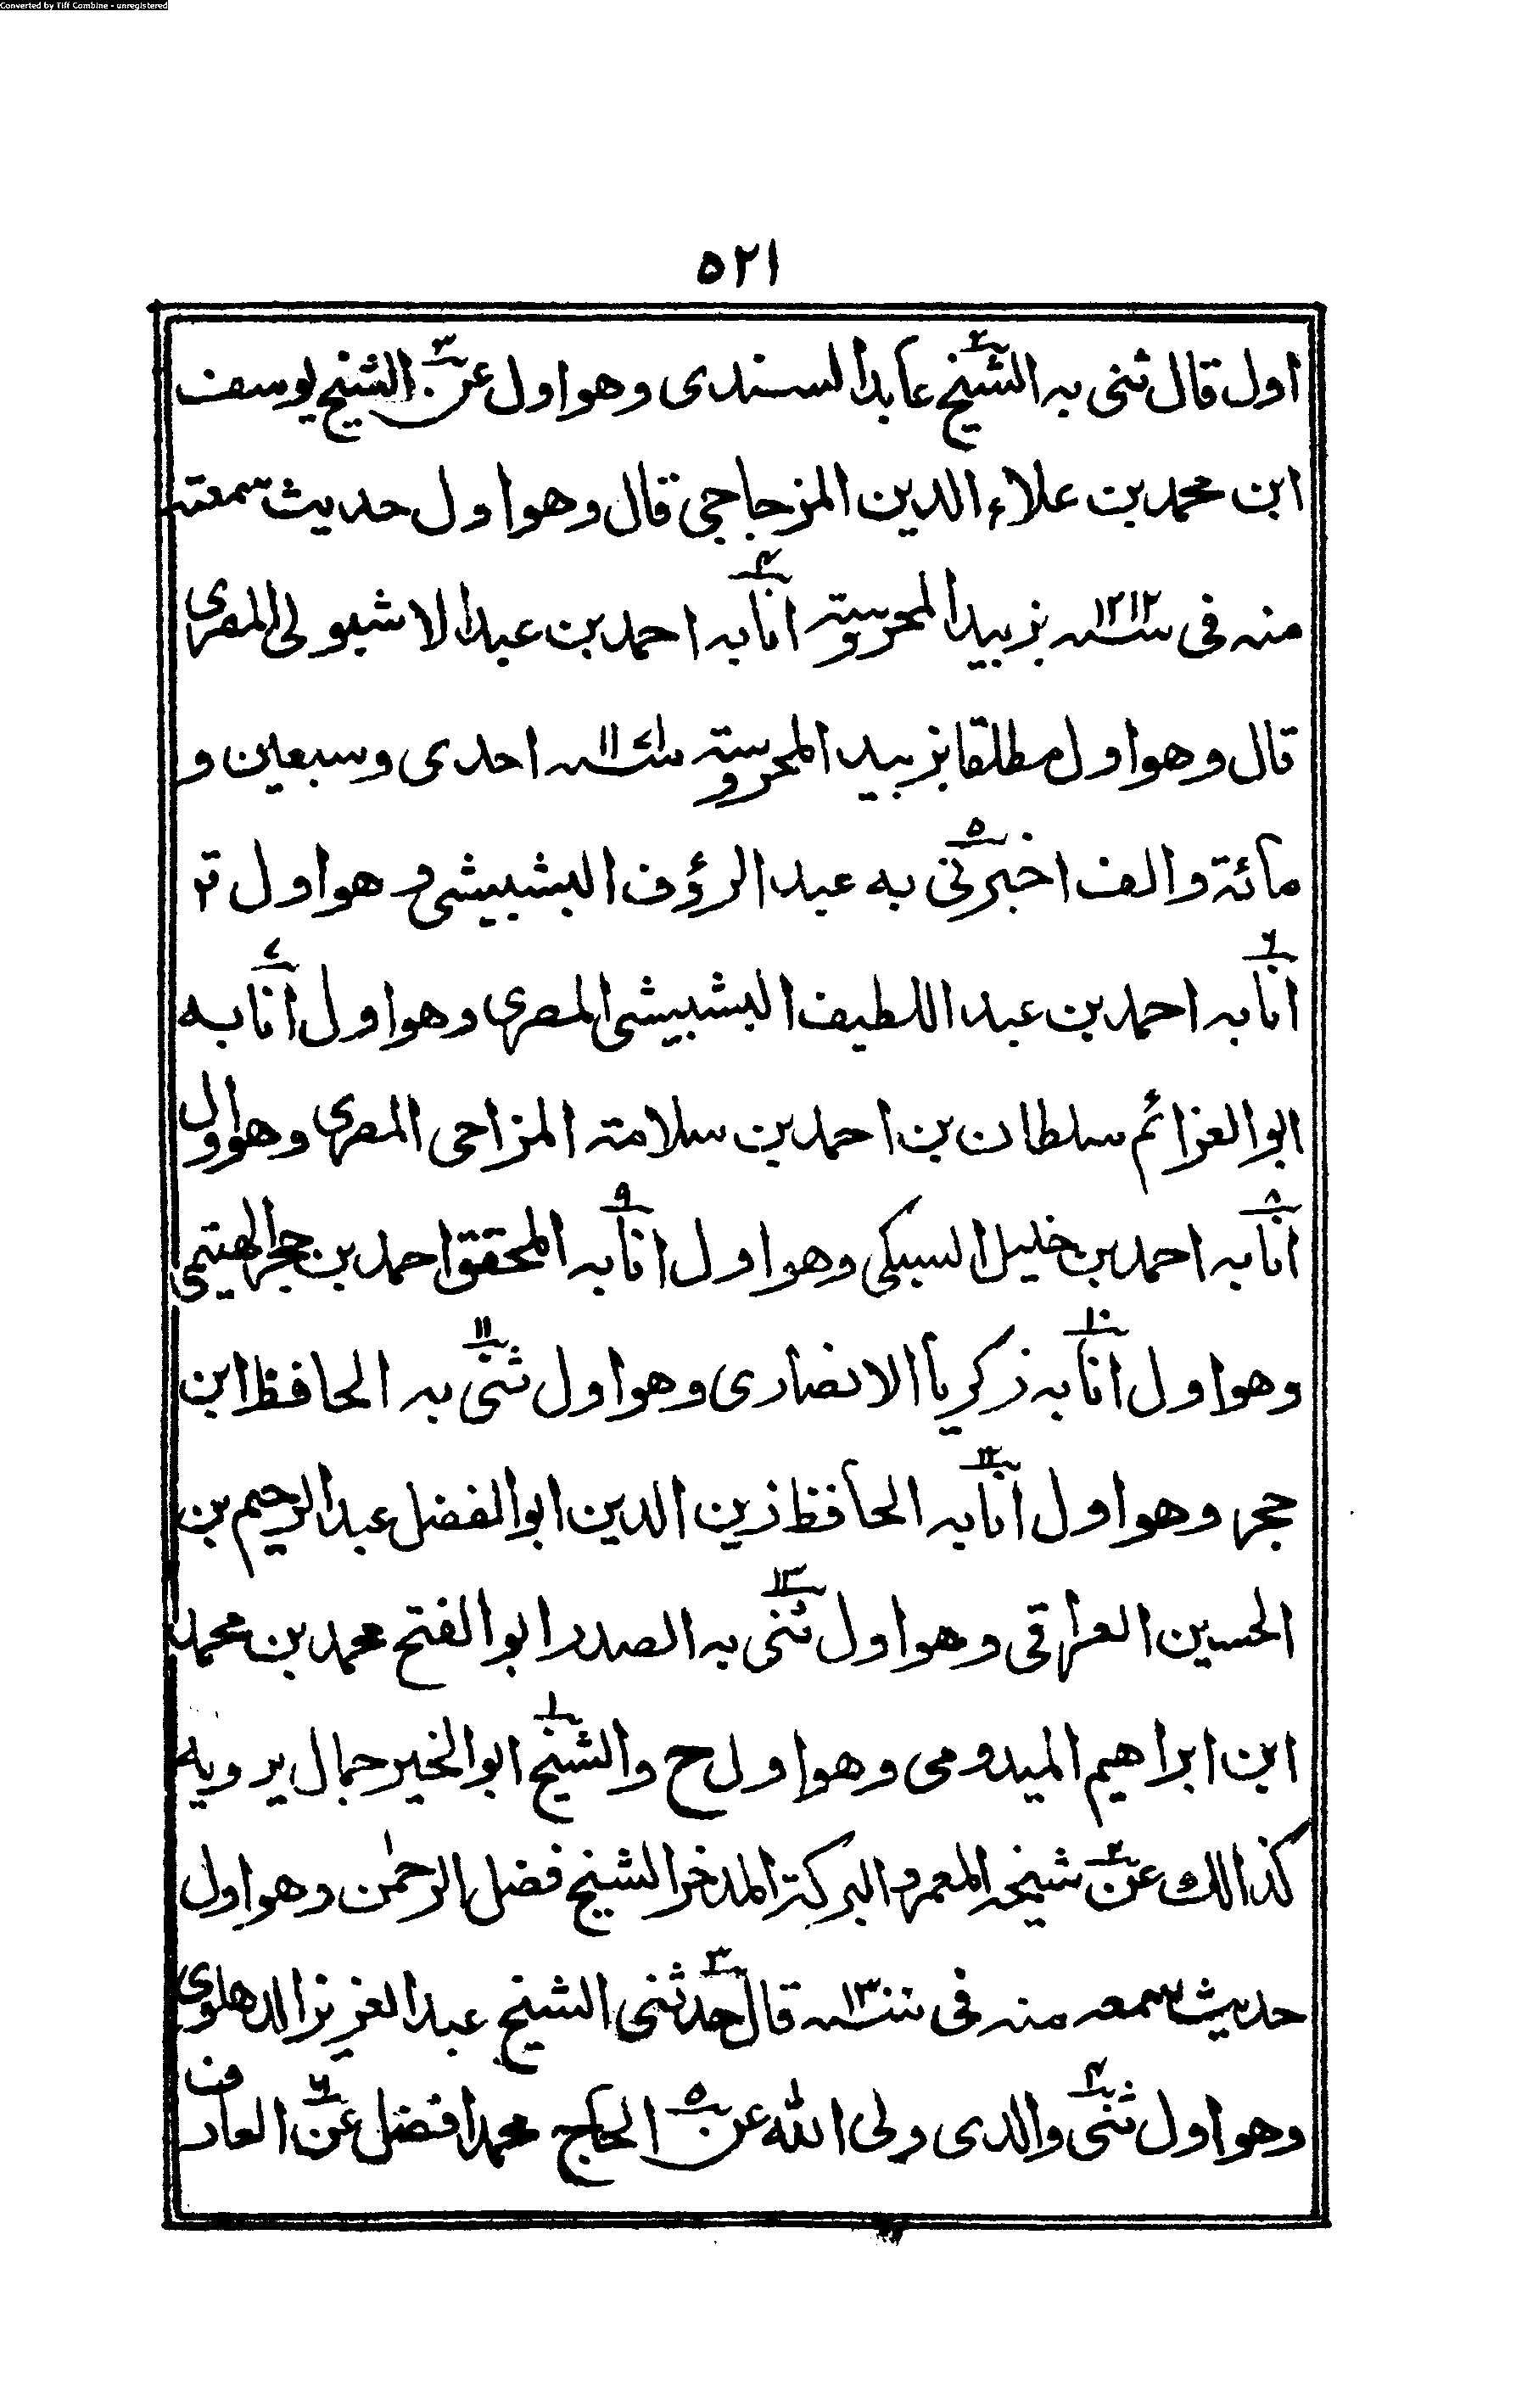 Converted by Tiff Combine - unregistered
٥٢١
اول قال ثنی به الشیخ عابد السندی وهو اول عن الشیخ یوسف
ابن محمد بن علاء الدین المزجاجی قال وهو اول حدیث سمعته
منه فی سنه ١٢١٢ بزبید المحروسة انا به احمد بن عبد الاشبولی المصری
قال وهو اول مطلقا بزبید المحروسة سنه ١١٧١ احدی وسبعین و
مائة والف اخبرنی به عبد الرؤف البشبیشی وهو اول
انا به احمد بن عبد اللطیف البشبیشی المصری وهو اول انا به
ابو العزائم سلطان بن احمد بن سلامة المزاحی المصری وهو اول
انا به احمد بن خلیل السبکی وهو اول انا به المحقق احمد بن حجر الهیتمی
وهو اول انا به زکریا الانصاری وهو اول ثنی به الحافظ ابن
حجر وهو اول انا به الحافظ زین الدین ابو الفضل عبد الرحیم بن
الحسین العراقی وهو اول ثنی به الصدر ابو الفتح محمد بن محمد
ابن ابراهیم المیدومی وهو اول ح والشیخ ابو الخیر جمال یرویه
کذالك عن شیخه المعمر و البرکة المدخر الشیخ فضل الرحمٰن وهو اول
حدیث سمعه منه فی سنه قال حدثنی الشیخ عبد العزیز الدهلوی
وهو اول ثنی والدی ولی الله عن الحاج محمد افضل عن العارف